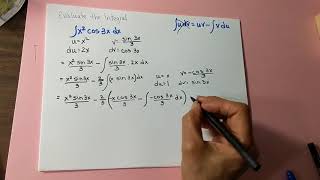 Evaluate the Integral
∫udv = uv - ∫v du
∫x² cos 3x dx
u = x² v = sin 3x/3
du = 2x dv = cos 3x
= x² sin 3x/3 - ∫ sin 3x/3 · 2x dx
= x² sin 3x/3 - 2/3 ∫(x sin 3x) dx u = x v = -cos 3x/3
du = 1 dv = sin 3x
= x² sin 3x/3 - 2/3 (-x cos 3x/3 - ∫ -cos 3x/3 dx)